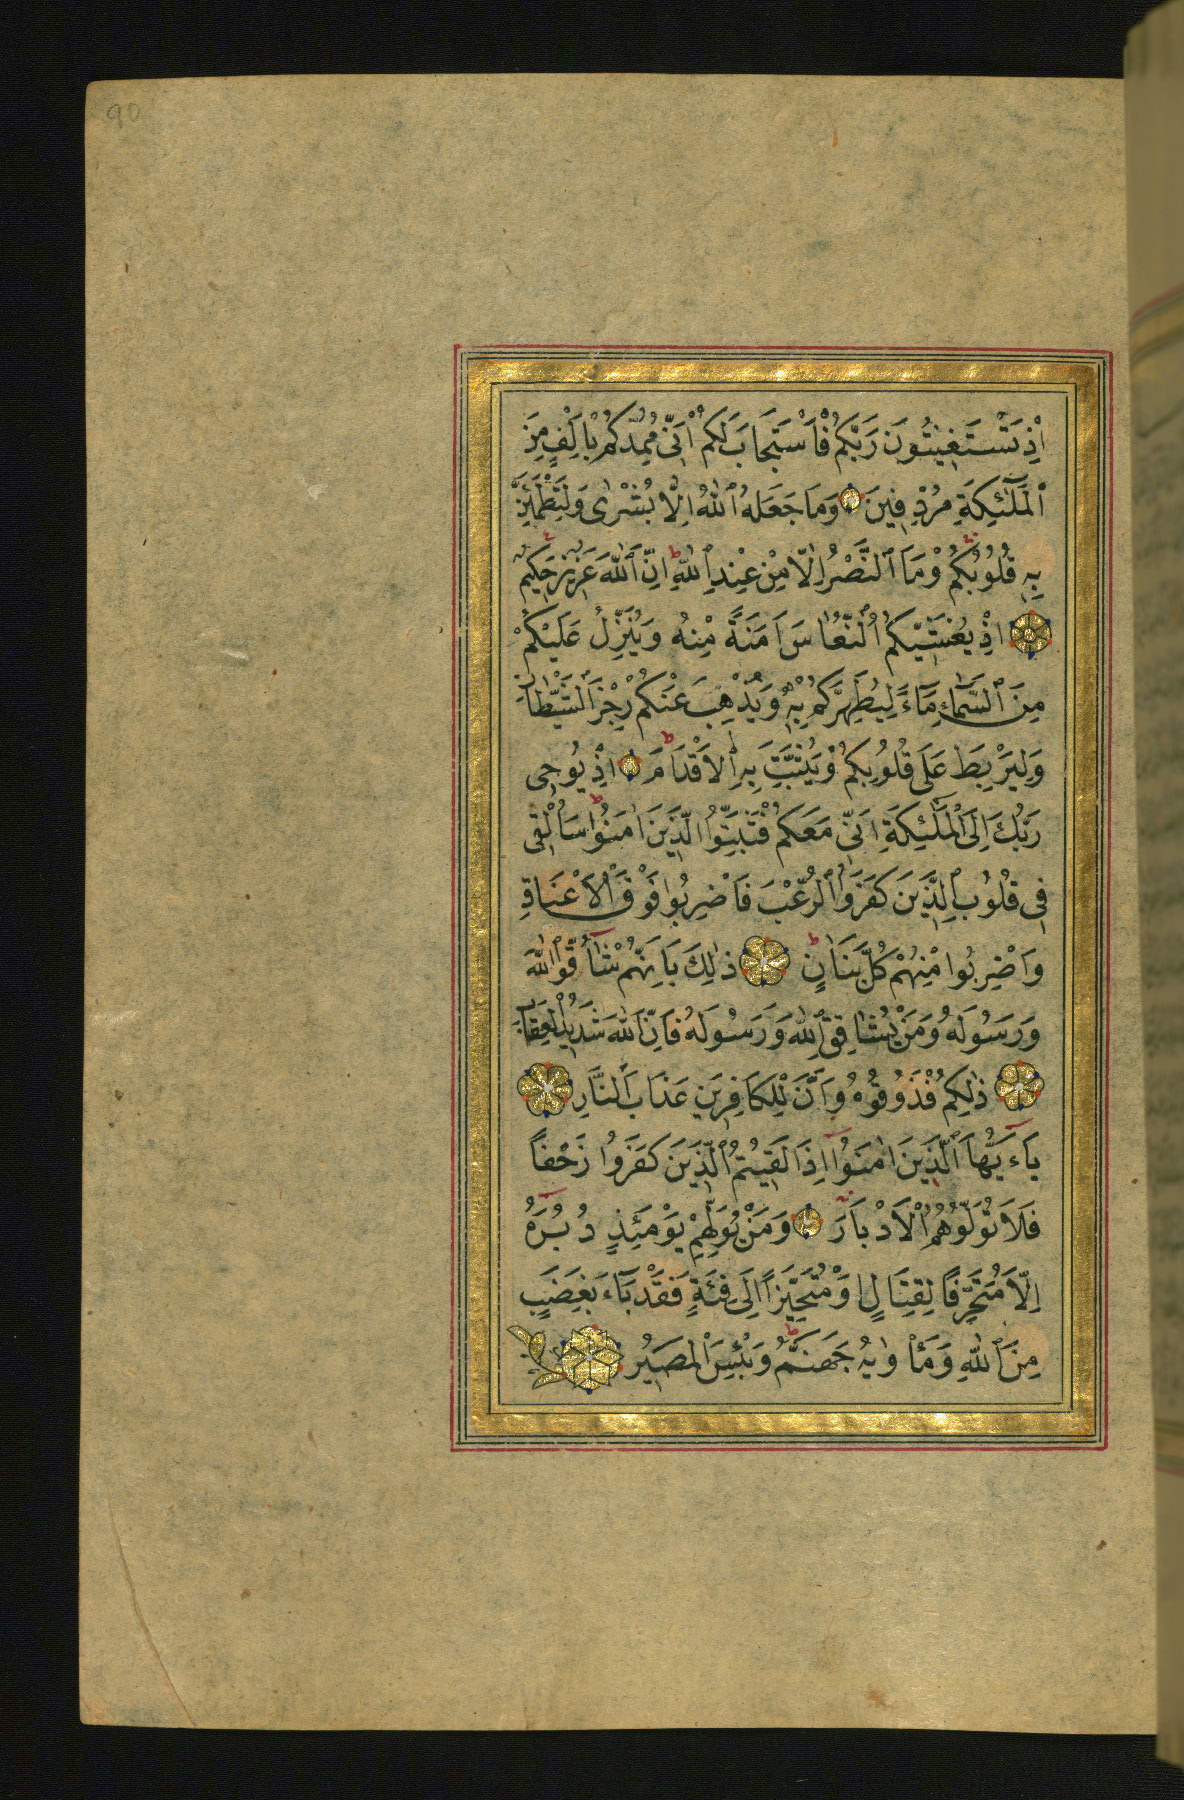 90
اِذْ تَسْتَغِيثُونَ رَبَّكُمْ فَاسْتَجَابَ لَكُمْ اَنّٖى مُمِدُّكُمْ بِاَلْفٍ مِنَ
الْمَلٰٓئِكَةِ مُرْدِفٖينَ وَمَا جَعَلَهُ اللّٰهُ اِلَّا بُشْرٰى وَلِتَطْمَئِنَّ
بِهٖ قُلُوبُكُمْ وَمَا النَّصْرُ اِلَّا مِنْ عِنْدِ اللّٰهِ اِنَّ اللّٰهَ عَزٖيزٌ حَكٖيمٌ
اِذْ يُغَشّٖيكُمُ النُّعَاسَ اَمَنَةً مِنْهُ وَيُنَزِّلُ عَلَيْكُمْ
مِنَ السَّمَٓاءِ مَٓاءً لِيُطَهِّرَكُمْ بِهٖ وَيُذْهِبَ عَنْكُمْ رِجْزَ الشَّيْطَانِ
وَلِيَرْبِطَ عَلٰى قُلُوبِكُمْ وَيُثَبِّتَ بِهِ الْاَقْدَامَ اِذْ يُوحٖى
رَبُّكَ اِلَى الْمَلٰٓئِكَةِ اَنّٖى مَعَكُمْ فَثَبِّتُوا الَّذٖينَ اٰمَنُوا سَاُلْقٖى
فٖى قُلُوبِ الَّذٖينَ كَفَرُوا الرُّعْبَ فَاضْرِبُوا فَوْقَ الْاَعْنَاقِ
وَاضْرِبُوا مِنْهُمْ كُلَّ بَنَانٍ ذٰلِكَ بِاَنَّهُمْ شَٓاقُّوا اللّٰهَ
وَرَسُولَهُ وَمَنْ يُشَاقِقِ اللّٰهَ وَرَسُولَهُ فَاِنَّ اللّٰهَ شَدٖيدُ الْعِقَابِ
ذٰلِكُمْ فَذُوقُوهُ وَاَنَّ لِلْكَافِرٖينَ عَذَابَ النَّارِ
يَٓاءَيُّهَا الَّذٖينَ اٰمَنُٓوا اِذَا لَقٖيتُمُ الَّذٖينَ كَفَرُوا زَحْفًا
فَلَا تُوَلُّوهُمُ الْاَدْبَارَ وَمَنْ يُوَلِّهِمْ يَوْمَئِذٍ دُبُرَهُٓ
اِلَّا مُتَحَرِّفًا لِقِتَالٍ اَوْ مُتَحَيِّزًا اِلٰى فِئَةٍ فَقَدْ بَٓاءَ بِغَضَبٍ
مِنَ اللّٰهِ وَمَاْوٰيهُ جَهَنَّمُ وَبِئْسَ الْمَصٖيرُ